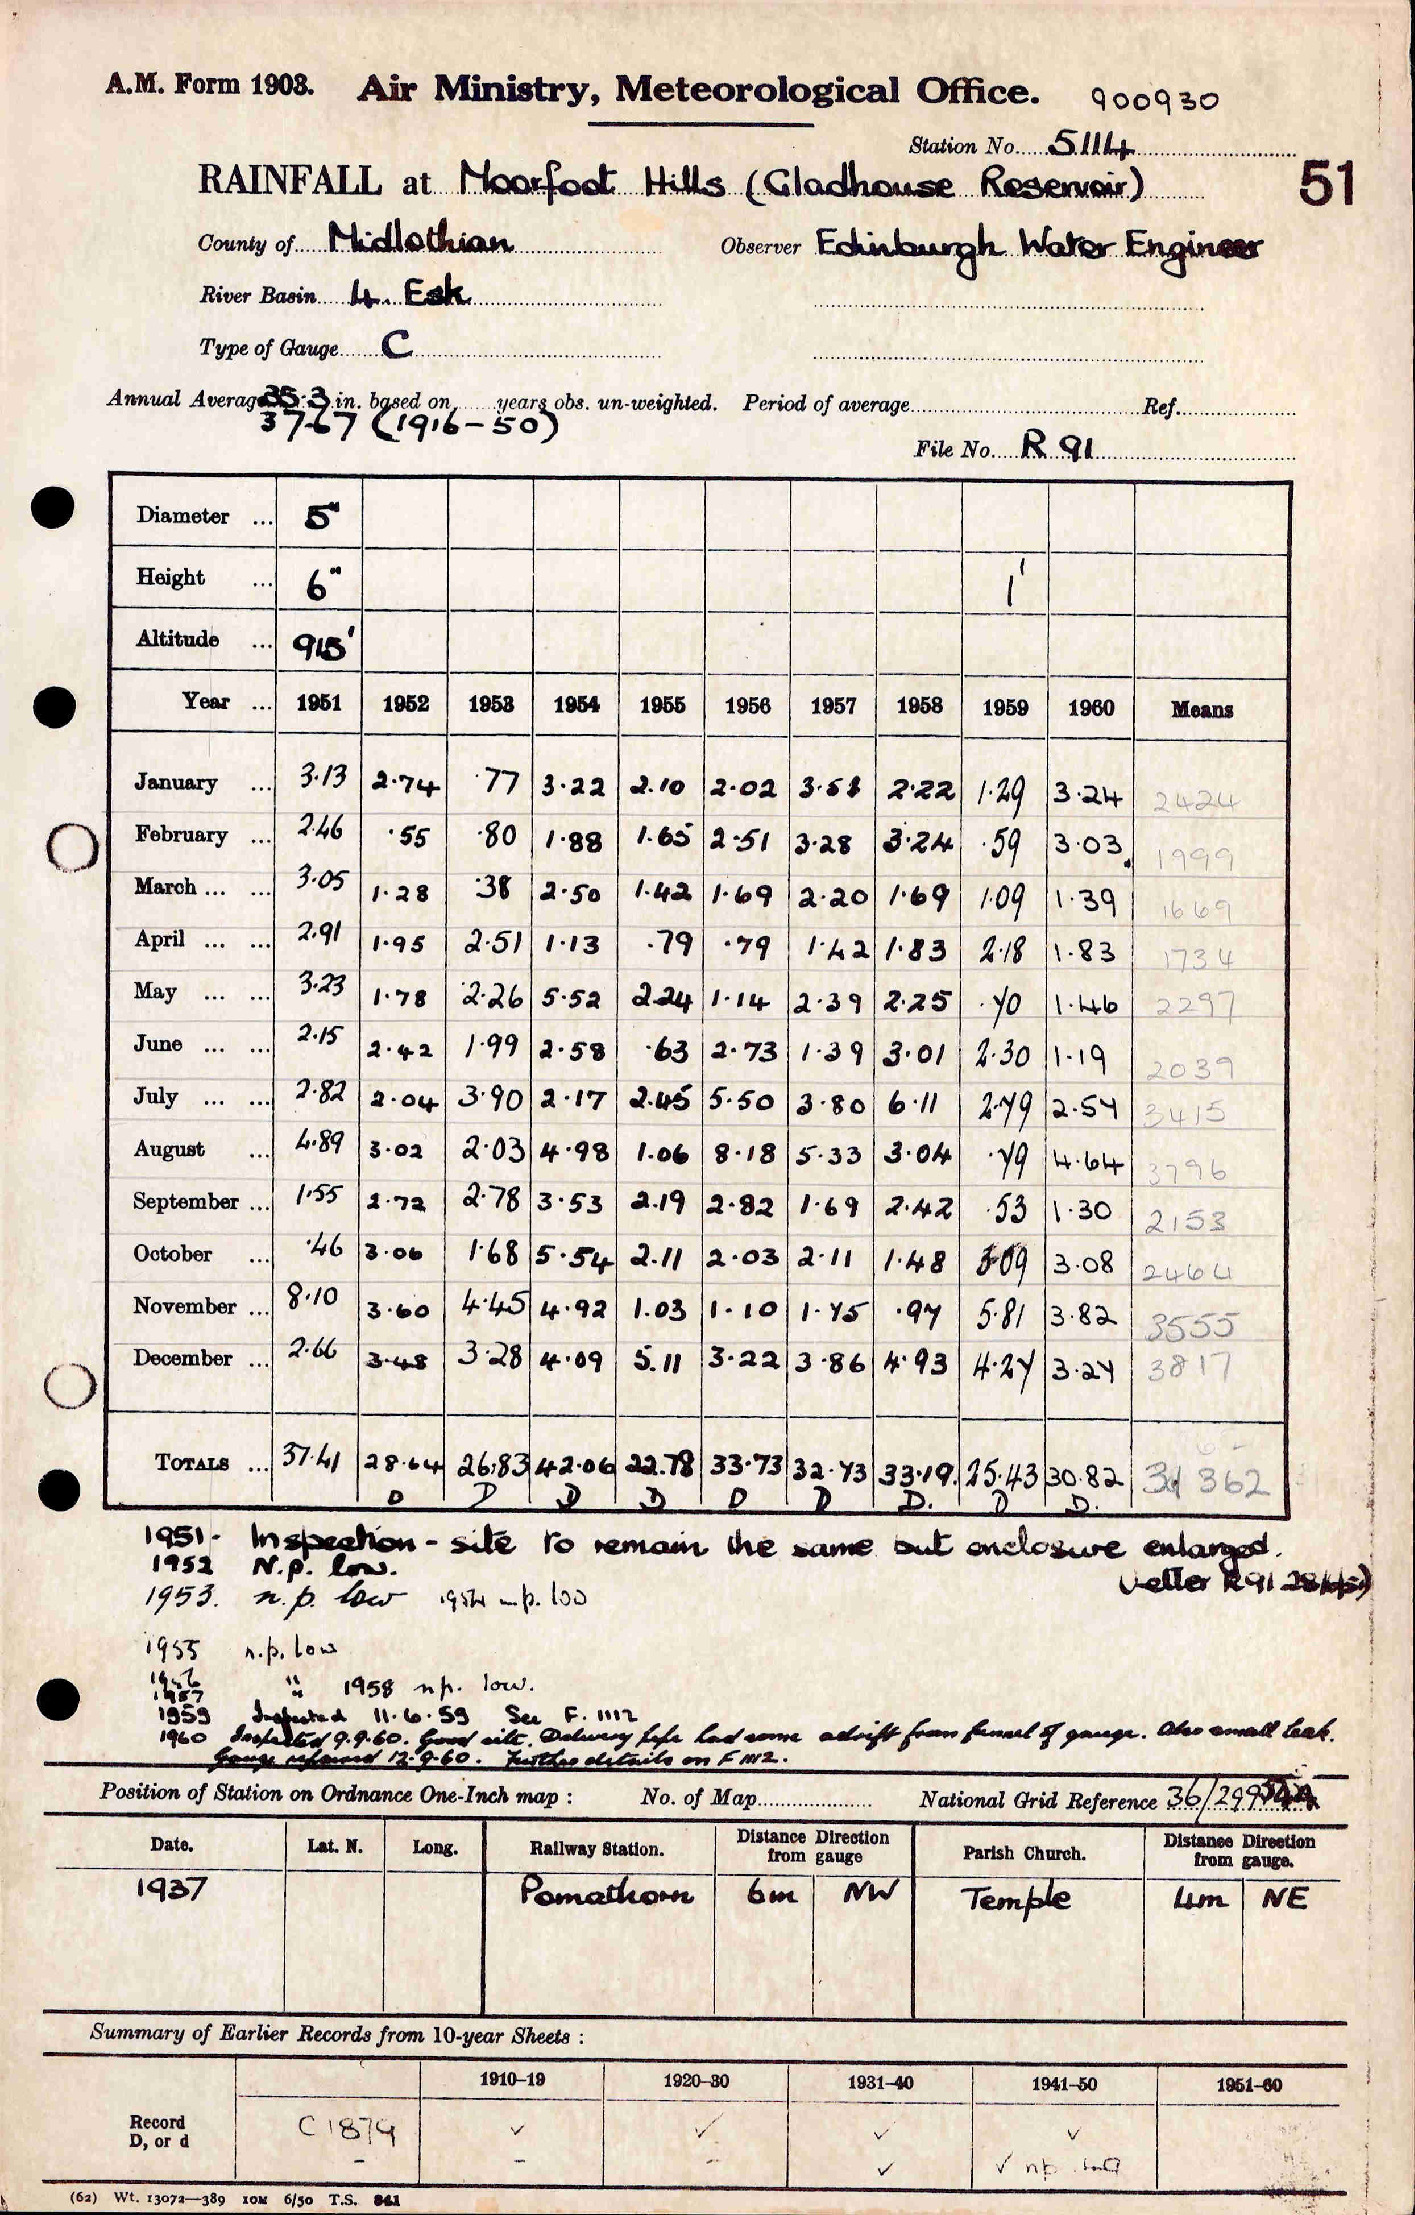 A.M. Form 1903. Air Ministry, Meteorological Office. 900930
Station No. 5114
RAINFALL at Moorfoot Hills (Gladhouse Reservoir) 51
County of Midlothian Observer Edinburgh Water Engineer
River Basin 4. Esk
Type of Gauge C
Annual Average 35.3 in. based on years obs. un-weighted. Period of average Ref.
37.67 (1916-50)
File No. R 91
Diameter ... 5"
Height ... 6" 1'
Altitude ... 915'
Year ... 1951 1952 1953 1954 1955 1956 1957 1958 1959 1960 Means
January ... 3.13 2.74 .77 3.22 2.10 2.02 3.51 2.22 1.29 3.24 2424
February ... 2.46 .55 .80 1.88 1.65 2.51 3.28 3.24 .59 3.03 1999
March ... ... 3.05 1.28 .38 2.50 1.42 1.69 2.20 1.69 1.09 1.39 1669
April ... ... 2.91 1.95 2.51 1.13 .79 .79 1.42 1.83 2.18 1.83 1734
May ... ... 3.23 1.78 2.26 5.52 2.24 1.14 2.39 2.25 .70 1.46 2297
June ... ... 2.15 2.42 1.99 2.58 .63 2.73 1.39 3.01 2.30 1.19 2039
July ... ... 2.82 2.04 3.90 2.17 2.45 5.50 3.80 6.11 2.79 2.57 3415
August ... 4.89 3.02 2.03 4.98 1.06 8.18 5.33 3.04 .79 4.64 3796
September ... 1.55 2.72 2.78 3.53 2.19 2.82 1.69 2.42 .53 1.30 2153
October ... .46 3.06 1.68 5.54 2.11 2.03 2.11 1.48 3.09 3.08 2464
November ... 8.10 3.60 4.45 4.92 1.03 1.10 1.75 .97 5.81 3.82 3555
December ... 2.66 3.48 3.28 4.09 5.11 3.22 3.86 4.93 4.27 3.27 3817
TOTALS ... 37.41 28.64 26.83 42.06 22.78 33.73 32.73 33.19. 25.43 30.82 31 362
D D D D D D D. D D.
1951 - Inspection - site to remain the same but enclosure enlarged.
(letter R91
1952 N.p. low.
1953. n.p. low 1954 n.p. low
1955 n.p. low
1956 "
1957 " 1958 n.p. low.
1959 Inspected 11.6.59 See F. 1112
1960 Inspected 9.9.60. Good site. Delivery pipe had come adrift from funnel of gauge. Also small leak.
Gauge repaired 12.9.60. Further details on F 1112.
Position of Station on Ordnance One-Inch map : No. of Map National Grid Reference 36/299
Date. Lat. N. Long. Railway Station. Distance Direction from gauge Parish Church. Distance Direction from gauge.
1937 Pomathorn 6m NW Temple 4m NE
Summary of Earlier Records from 10-year Sheets :
1910-19 1920-30 1931-40 1941-50 1951-60
Record C 1879 ✓ ✓ ✓ ✓
D, or d - - - ✓ ✓ np low
(62) Wt. 13072—389 10M 6/50 T.S. 841